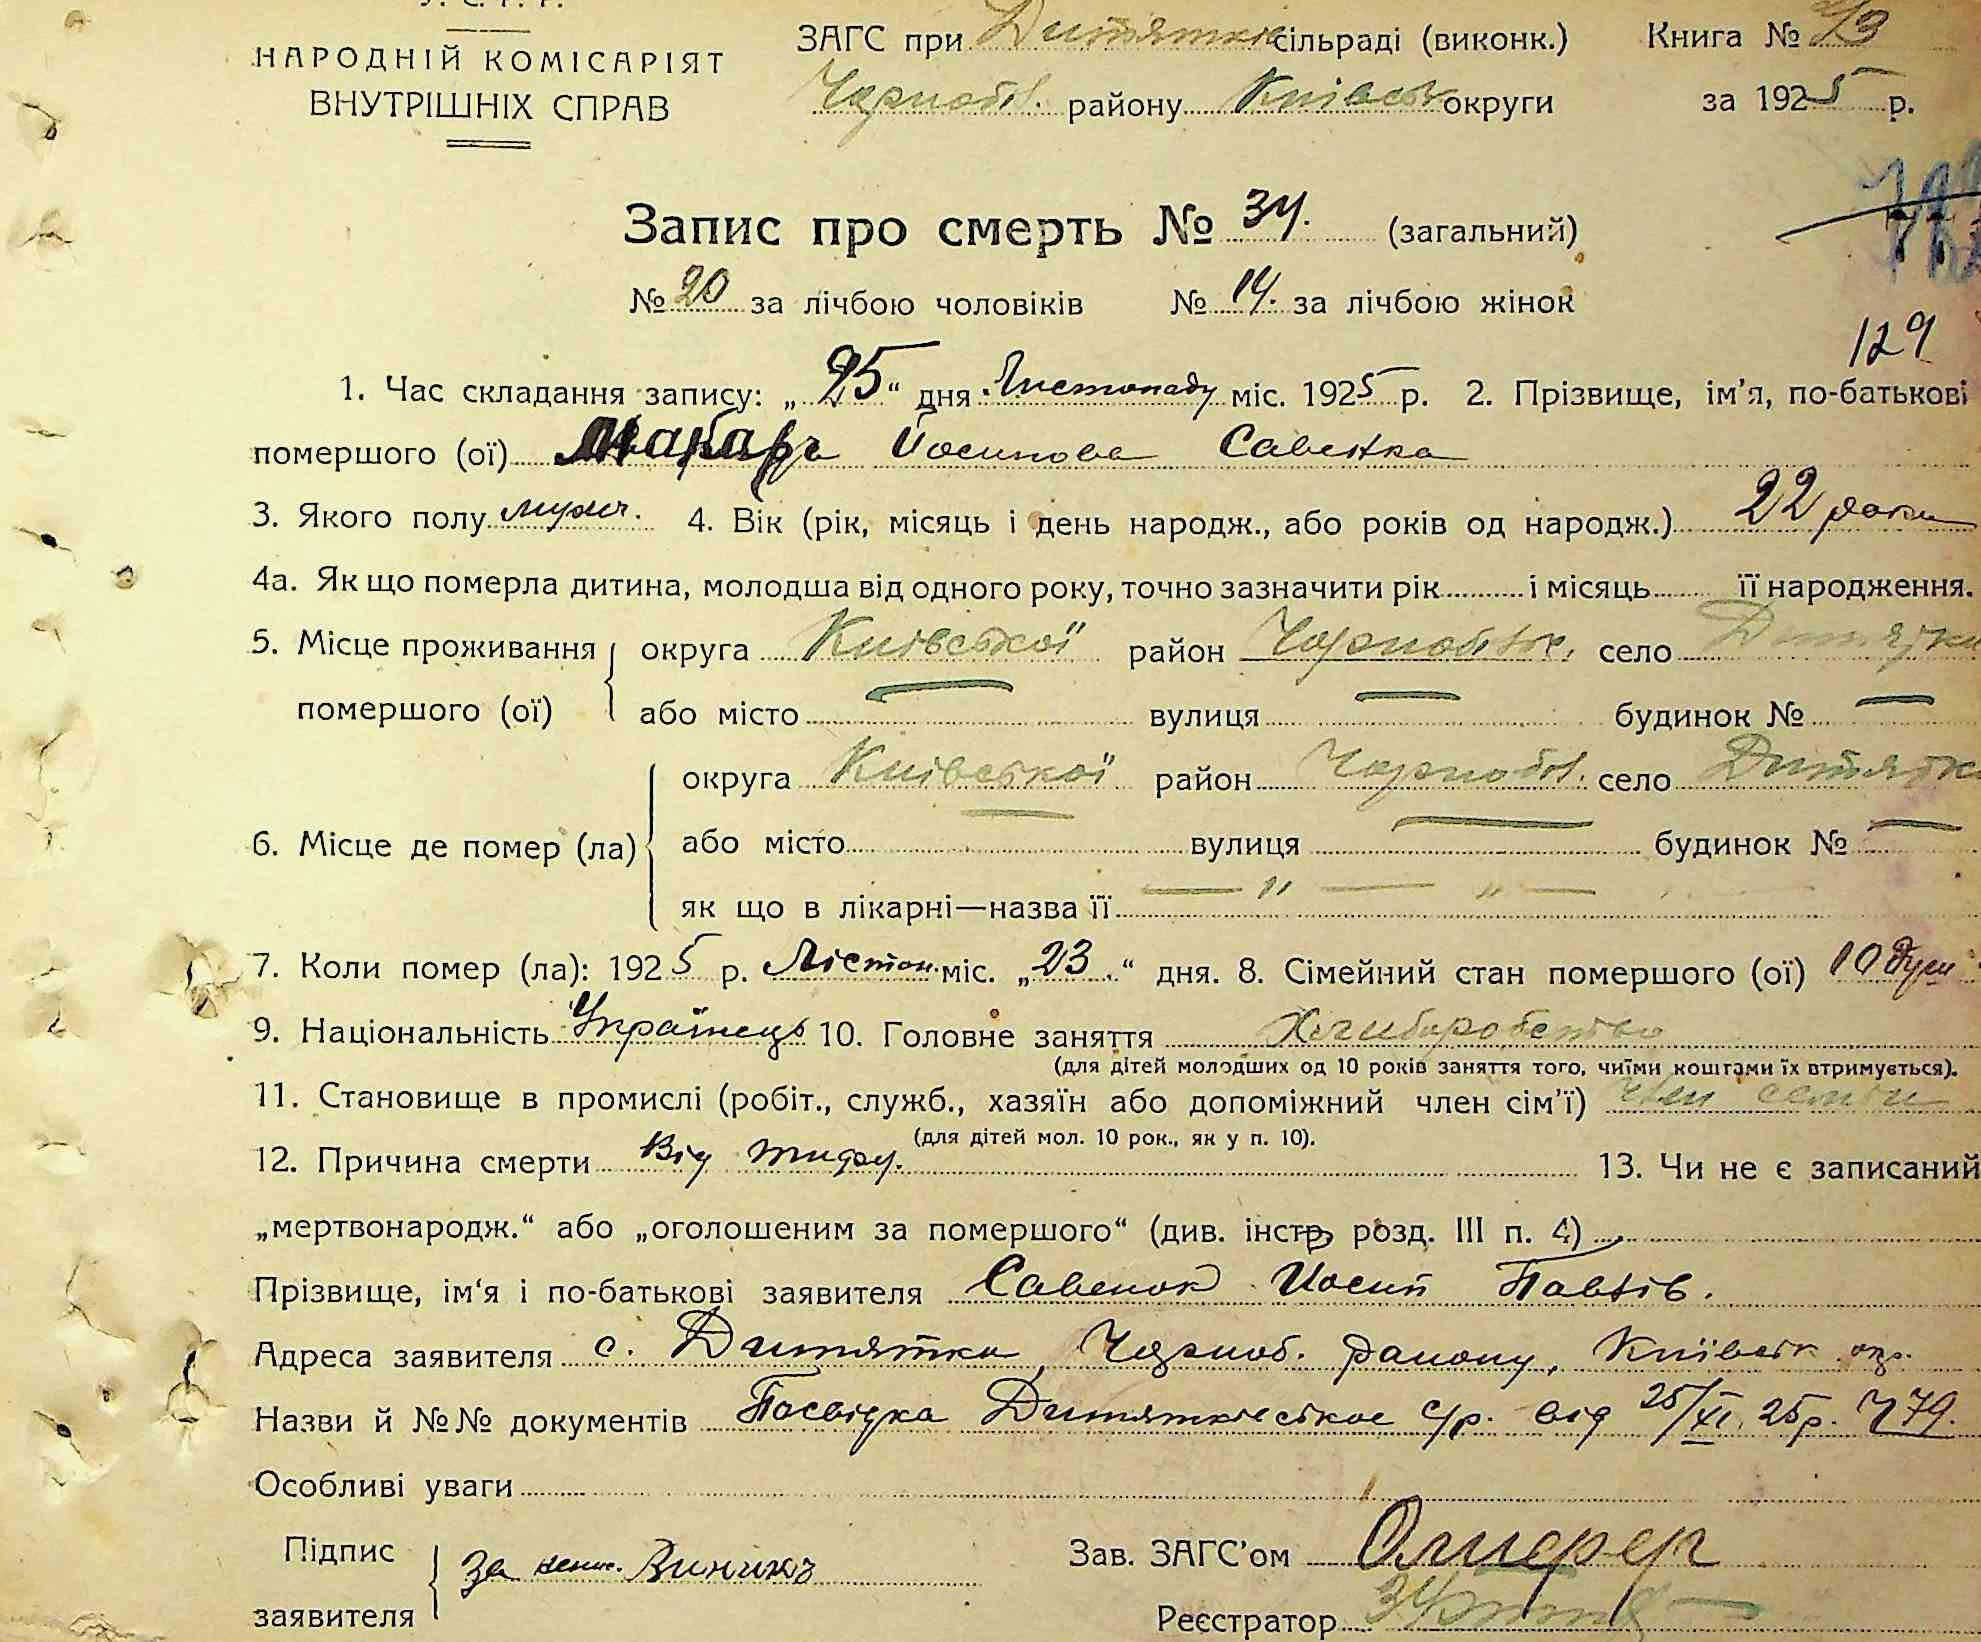 У. С. Р. Р.
НАРОДНІЙ КОМІСАРІЯТ
ВНУТРІШНІХ СПРАВ
ЗАГС при Дитятків сільраді (виконк.) Книга №
Чорноб. району Київськ округи за 1925 р.
Запис про смерть № 34. (загальний)
№ 20 за лічбою чоловіків № 14. за лічбою жінок
129
1. Час складання запису: „ 25 “ дня Листопаду міс. 1925 р. 2. Прізвище, ім'я, по-батькові
помершого (ої) Йосипова Савенка
3. Якого полу муж. 4. Вік (рік, місяць і день народж., або років од народж.) 22 роки
4а. Як що померла дитина, молодша від одного року, точно зазначити рік і місяць її народження.
5. Місце проживання помершого (ої) округа Київської район Чорнобильс. село Дитятки
або місто — вулиця — будинок № —
6. Місце де помер (ла) округа Київської район Чорноб. село Дитятк
або місто — вулиця — будинок № —
як що в лікарні—назва її — " — " —
7. Коли помер (ла): 1925 р. Лістоп. міс. „ 23 “ дня. 8. Сімейний стан помершого (ої) 10 душ
9. Національність Українець 10. Головне заняття Хлиборобство
(для дітей молодших од 10 років заняття того, чиїми коштами їх втримується).
11. Становище в промислі (робіт., служб., хазяїн або допоміжний член сім'ї) член семьи
(для дітей мол. 10 рок., як у п. 10).
12. Причина смерти Від тифу. 13. Чи не є записаний
„мертвонародж.“ або „оголошеним за помершого“ (див. інстр розд. III п. 4)
Прізвище, ім'я і по-батькові заявителя Савенок Йосип Павлів.
Адреса заявителя с. Дитятки, Чорноб. району, Київськ окр.
Назви й №№ документів Посвідка Дитятківської с/р. від 25/XI. 25р. Ч 79.
Особливі уваги
Підпис заявителя За непис.
Зав. ЗАГС'ом
Реєстратор